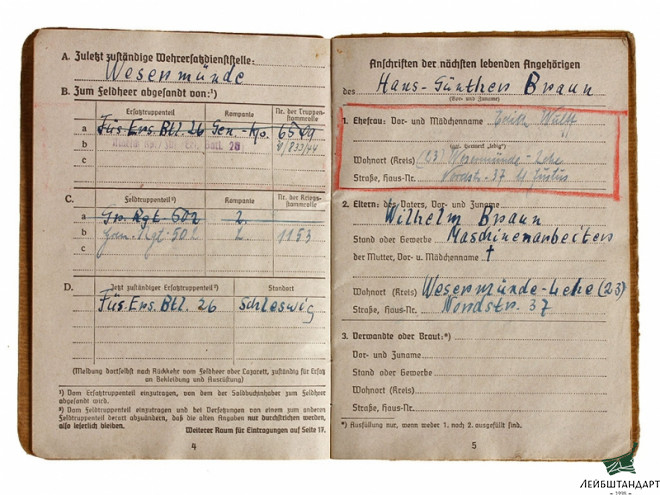 A. Zuletzt zuständige Wehrersatzdienststelle:
Wesermünde
B. Zum Feldheer abgesandt von:¹)
Ersatztruppenteil Kompanie Nr. der Truppenstammrolle
a Füs. Ers. Btl. 26 Gen.-Ko. 6549
b Batl. 26 833/44
c
C. Feldtruppenteil²) Kompanie Nr. der Kriegsstammrolle
a Gr. Rgt 502 2.
b Rgt. 502 2. 1153
c
D. Jetzt zuständiger Ersatztruppenteil³) Standort
Füs. Ers. Btl. 26 Schleswig
(Meldung dortselbst nach Rückkehr vom Feldheer oder Lazarett, zuständig für Ersatz
an Bekleidung und Ausrüstung)
¹) Vom Ersatztruppenteil einzutragen, von dem der Soldbuchinhaber zum Feldheer
abgesandt wird.
²) Vom Feldtruppenteil einzutragen und bei Versetzungen von einem zum anderen
Feldtruppenteil derart abzuändern, daß die alten Angaben nur durchstrichen werden,
also leserlich bleiben.
Weiterer Raum für Eintragungen auf Seite 17.
4
Anschriften der nächsten lebenden Angehörigen
des Hans-Günther Braun
(Vor- und Zuname)
1. Ehefrau: Vor- und Mädchenname
Wohnort (Kreis) (23) Wesermünde-Lehe
Straße, Haus-Nr. Nordstr. 37
2. Eltern: des Vaters, Vor- und Zuname
Wilhelm Braun
Stand oder Gewerbe Maschinenarbeiter
der Mutter, Vor- u. Mädchenname †
Wohnort (Kreis) Wesermünde-Lehe (23)
Straße, Haus-Nr. Nordstr. 37
3. Verwandte oder Braut:*)
Vor- und Zuname
Stand oder Gewerbe
Wohnort (Kreis)
Straße, Haus-Nr.
*) Ausfüllung nur, wenn weder 1. noch 2. ausgefüllt sind.
5
ЛЕЙБШТАНДАРТ